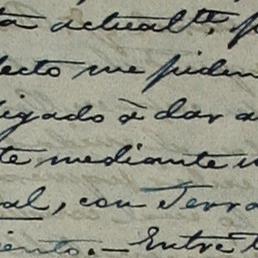 ta actualte. p
fecto me piden
ligado à dar a
te mediante u
al, con Terra
iento. — Entre t